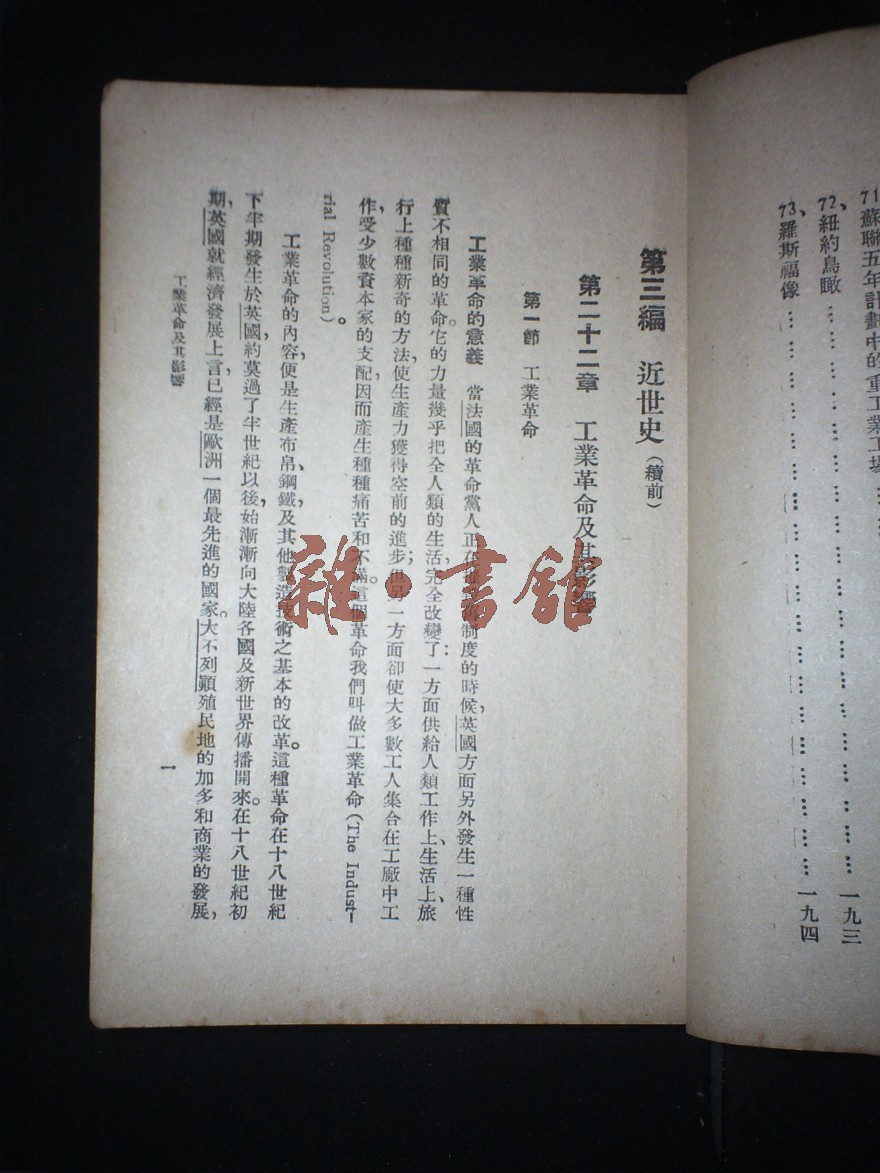 71、蘇聯五年計劃中的重工業工場
72、紐約鳥瞰 … … … … … … … … … … … 一九三
73、羅斯福像 … … … … … … … … … … … 一九四
第三編 近世史(續前)
第二十二章 工業革命及其影響
第一節 工業革命
工業革命的意義 當法國的革命黨人正在 制度的時候,英國方面另外發生一種性
質不相同的革命。它的力量幾乎把全人類的生活完全改變了:一方面供給人類工作上、生活上、旅
行上種種新奇的方法,使生產力獲得空前的進步;但另一方面卻使大多數工人集合在工廠中工
作,受少數資本家的支配因而產生種種痛苦和不滿。這個革命我們叫做工業革命(The Indust-
rial Revolution)。
工業革命的內容,便是生產布帛、鋼鐵,及其他製造技術之基本的改革。這種革命在十八世紀
下半期發生於英國,約莫過了半世紀以後,始漸漸向大陸各國及新世界傳播開來。在十八世紀初
期,英國就經濟發展上言,已經是歐洲一個最先進的國家。大不列顛殖民地的加多和商業的發展,
工業革命及其影響
一
雜·書館